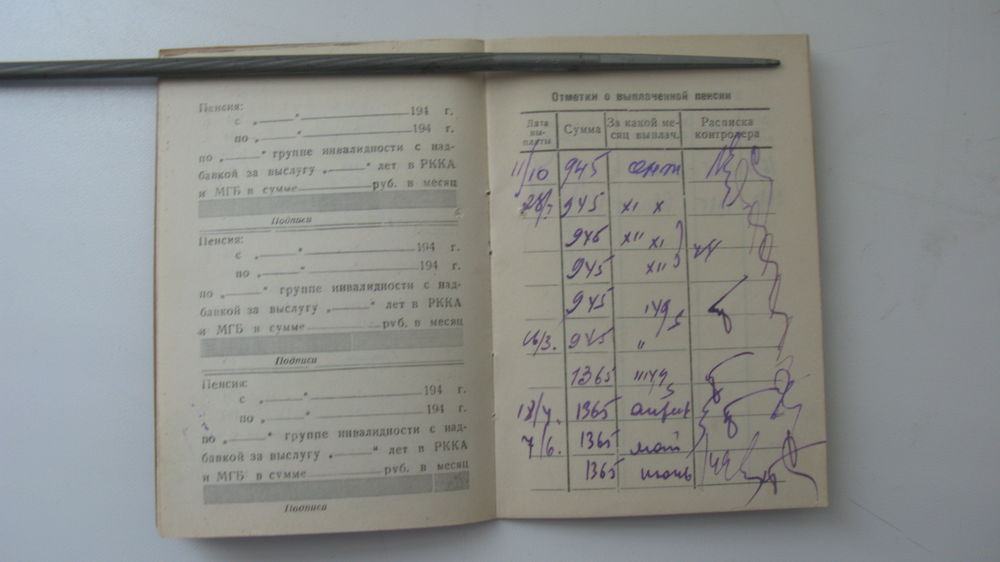 Пенсия:
с „______" ______194 г.
по „______" ______194 г.
по „______" группе инвалидности с над-
бавкой за выслугу „______" лет в РККА
и МГБ в сумме ______руб. в месяц
Подписи
Пенсия:
с „______" ______194 г.
по „______" ______194 г.
по „______" группе инвалидности с над-
бавкой за выслугу „______" лет в РККА
и МГБ в сумме ______руб. в месяц
Подписи
Пенсия:
с „______" ______194 г.
по „______" ______194 г.
по „______" группе инвалидности с над-
бавкой за выслугу „______" лет в РККА
и МГБ в сумме ______руб. в месяц
Подписи
Отметки о выплаченной пенсии
Дата вы-платы Сумма За какой ме-сяц выплач. Расписка контролера
11/10 945 сент
945 XI X
945 XII XI
945 XII
945
16/3. 945 "
1365
18/4. 1365 апрель
7/6. 1365 май
1365 июнь